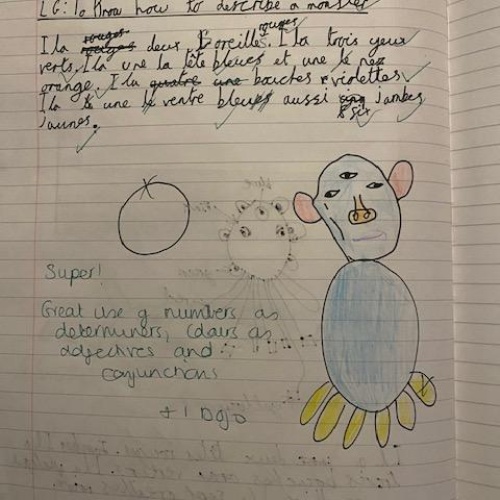 LC: To Know how to describe a monster
rouges
Il a deux oreilles. Il a trois yeux
verts. Il a une la tête bleues et une le nez
orange. Il a quatre une bouches violettes
Il a une le ventre bleues aussi jambes
six
jaunes.
Super!
Great use of numbers as
determiners, colours as
adjectives and
conjunctions
+1 Dojo